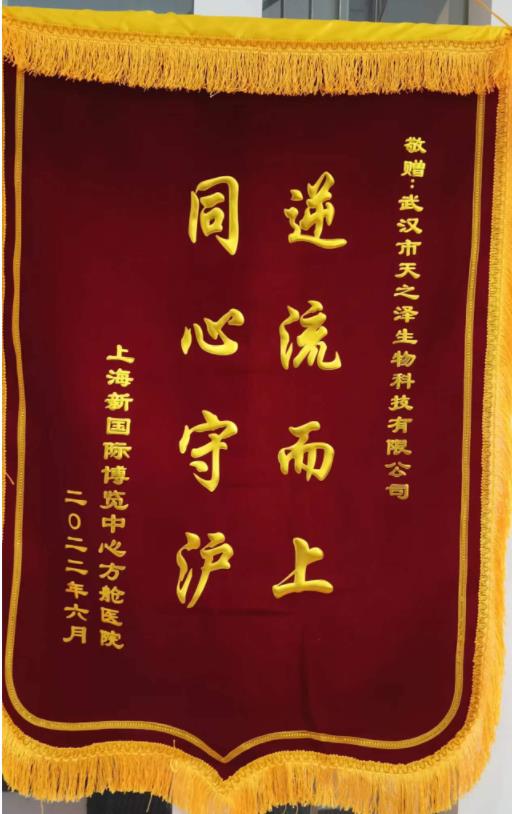 敬赠：武汉市天之泽生物科技有限公司
逆流而上
同心守沪
上海新国际博览中心方舱医院
二〇二二年六月